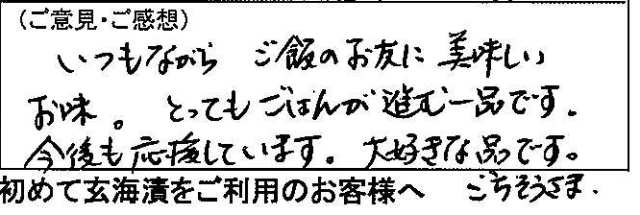 (ご意見・ご感想)
いつもながら ご飯のお友に 美味しい
お味。 とってもごはんが進む一品です.
今後も応援しています。大好きな品です。
初めて玄海漬をご利用のお客様へ ごちそうさま.